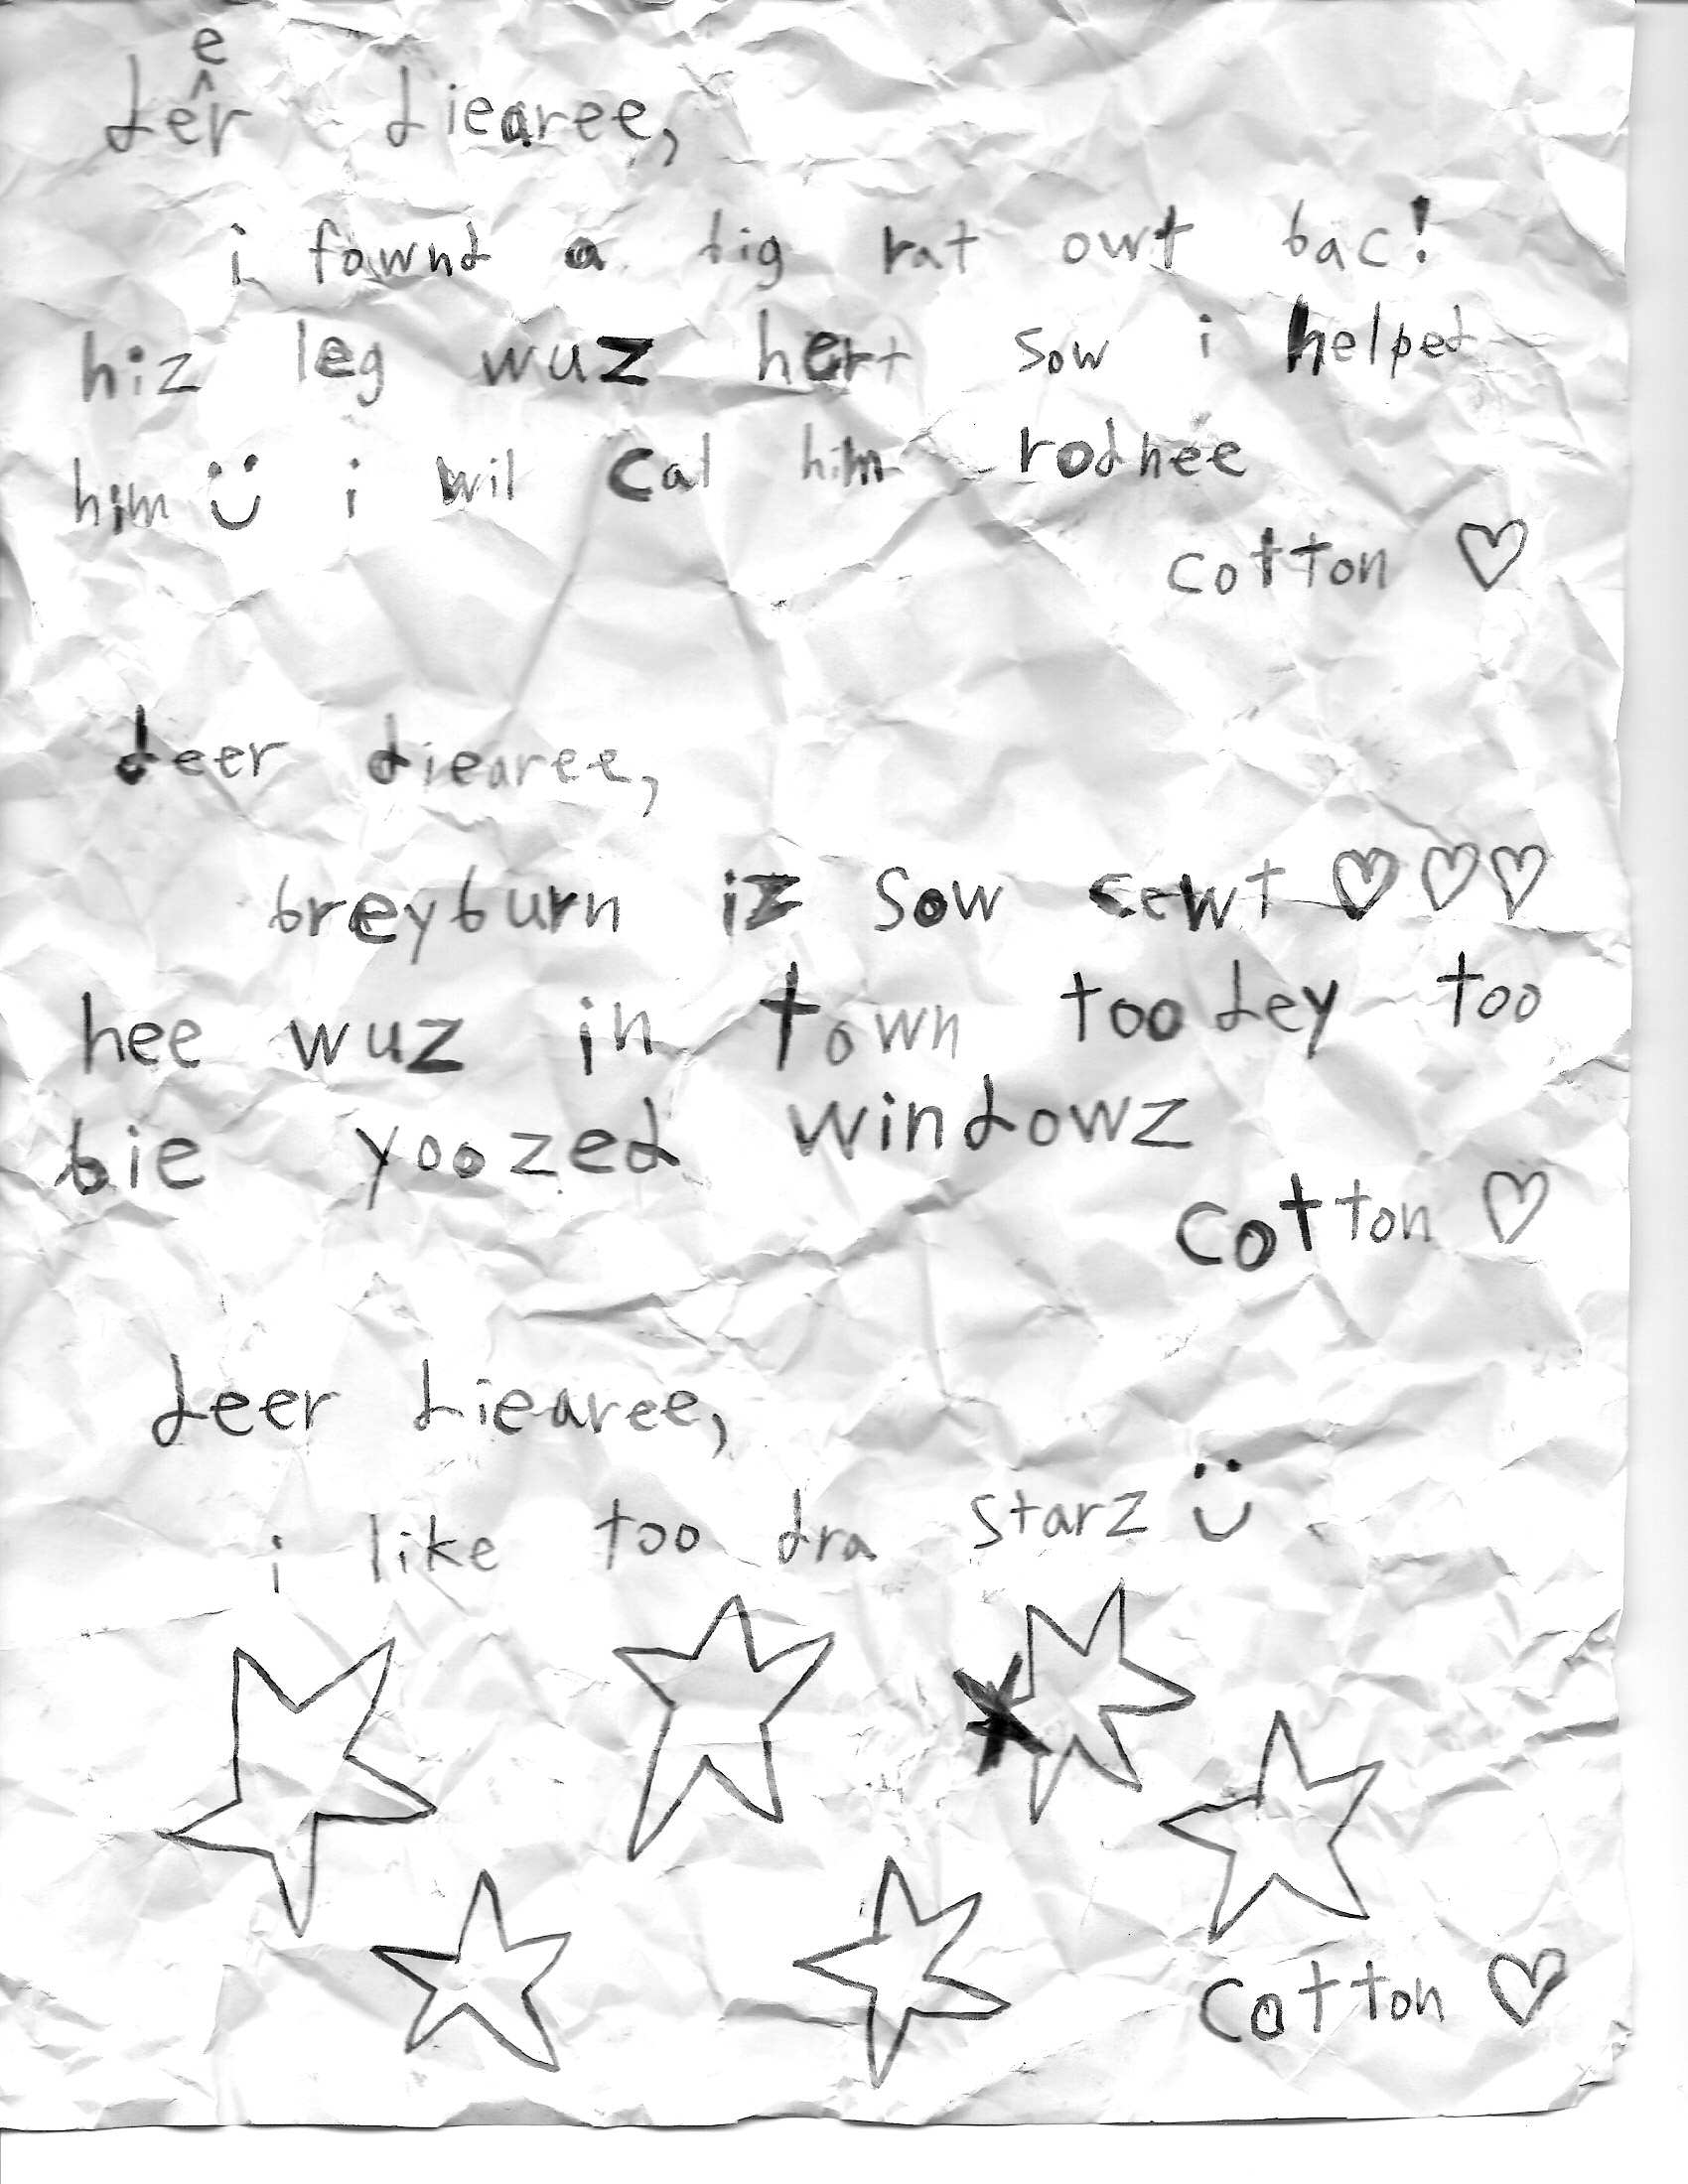 deer diearee,
i fownd a big rat owt bac!
hiz leg wuz hert sow i helped
him i wil cal him rodnee
cotton
deer diearee,
breyburn iz sow cewt
hee wuz in town toodey too
bie yoozed windowz
cotton
deer diearee,
i like too dra starz
cotton